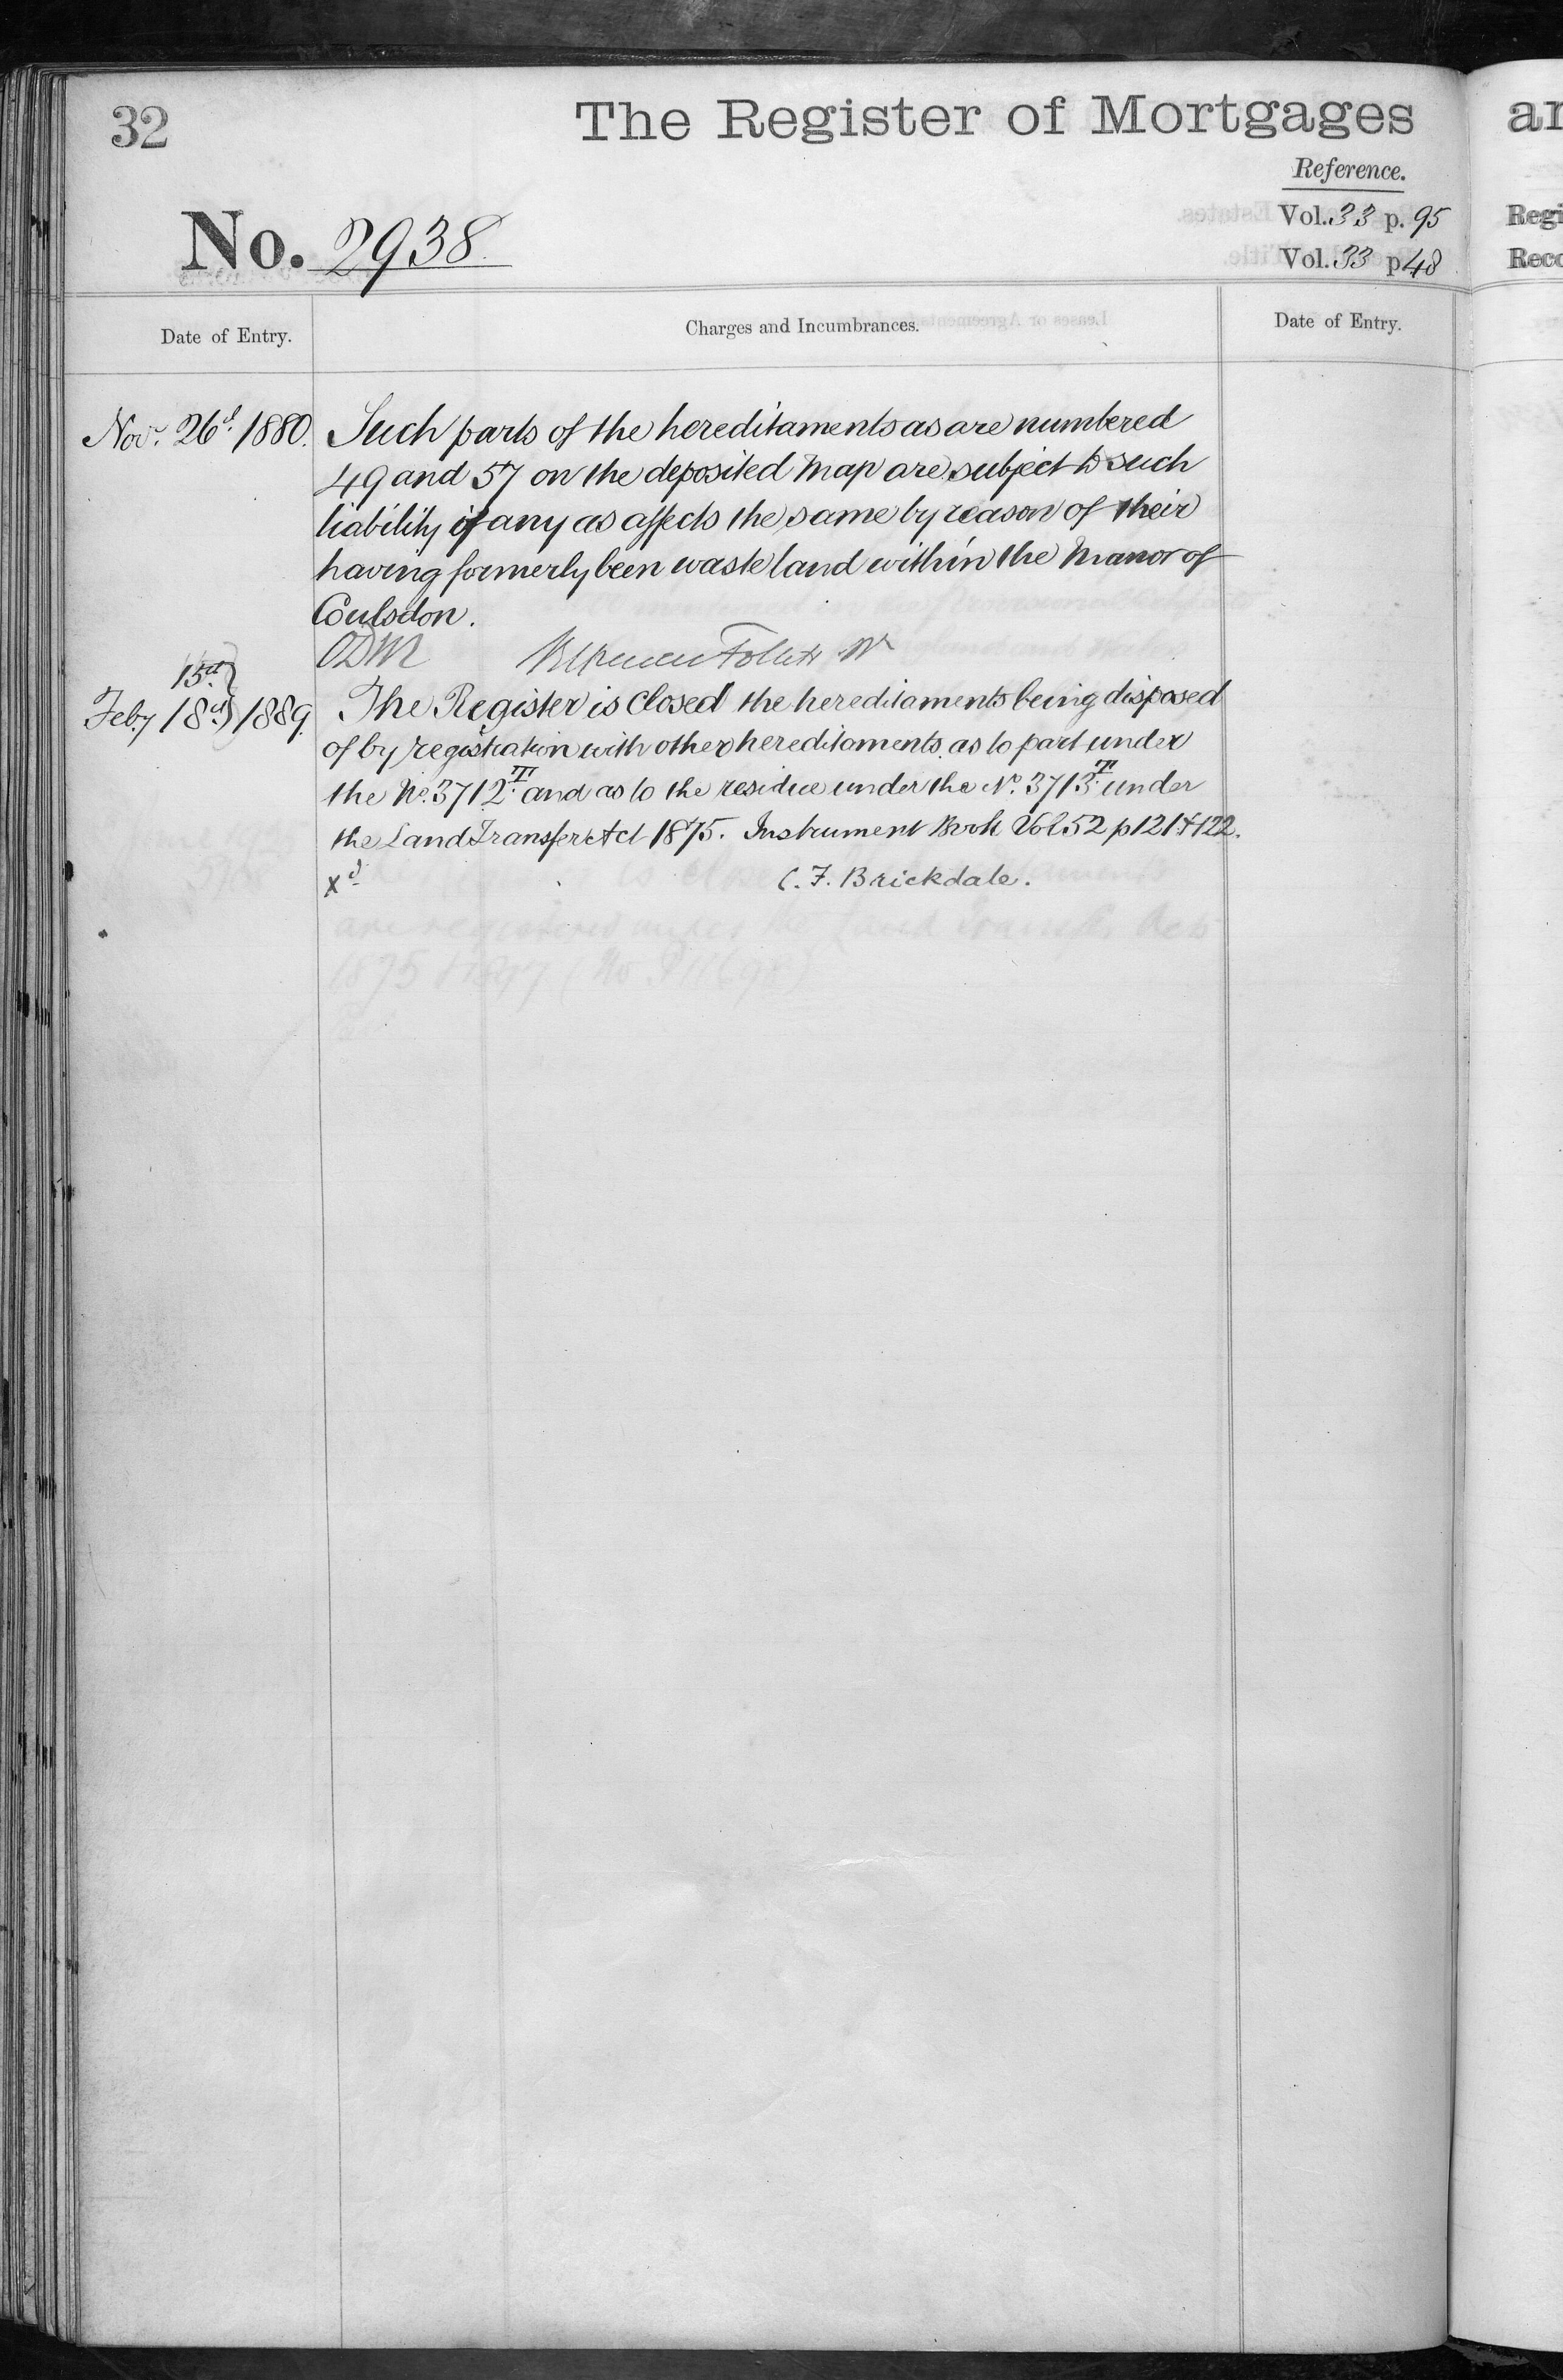 32
The Register of Mortgages
Reference.
Vol. 33 p. 95
Vol. 33 p 48
No. 2938.
Date of Entry.
Charges and Incumbrances.
Date of Entry.
Novr. 26d. 1880.
Such parts of the hereditaments as are numbered
49 and 57 on the deposited map are subject to such
liability if any as affects the same by reason of their
having formerly been waste land within the Manor of
Coulsdon.
ODM Follett
15d
Feby 18d } 1889.
The Register is closed the hereditaments being disposed
of by registration with other hereditaments as to part under
the No. 3712 T. and as to the residue under the No. 3713 T. under
the Land Transfer Act 1875. Instrument Book Vol 52 p 121 & 122.
Xd C. F. Brickdale.
ar
Regi
Reco